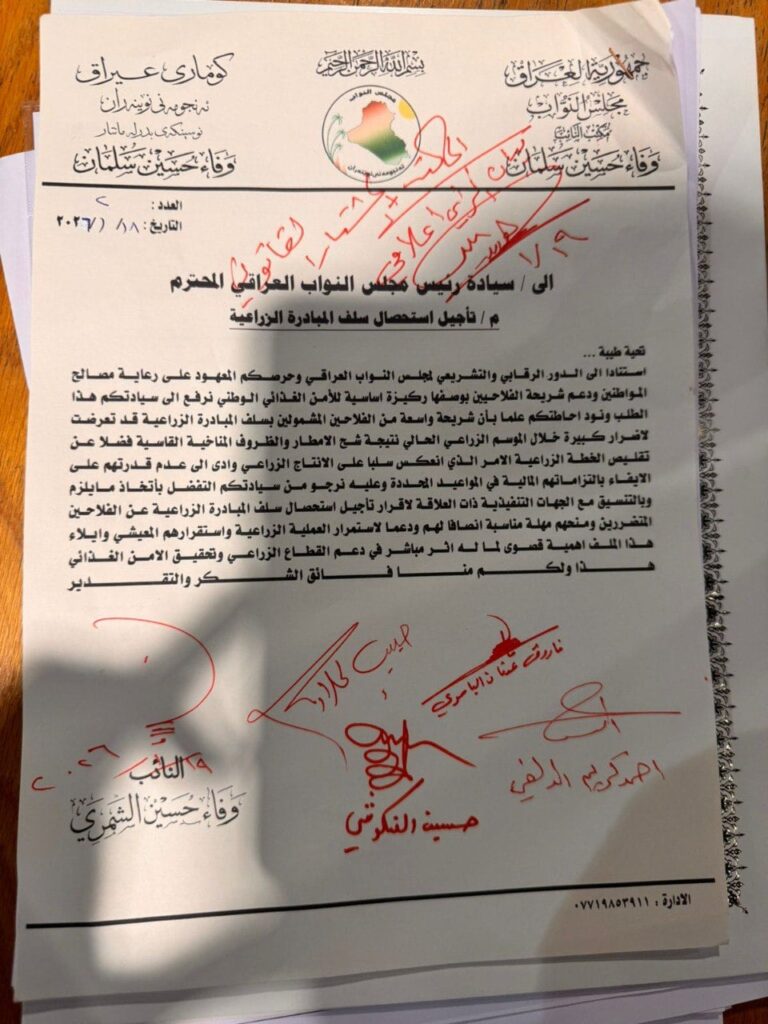 جمهورية العراق
مجلس النواب
مكتب النائب
وفاء حسين سلمان
بسم الله الرحمن الرحيم
مجلس النواب
ئەنجومەنی نوێنەران
كوماری عیراق
ئەنجومەنی نوینەران
وفاء حسين سلمان
العدد : ٢
التاريخ : ١٨/ ١/ ٢٠٢٦
١/١٩
الى / سيادة رئيس مجلس النواب العراقي المحترم
م / تأجيل استحصال سلف المبادرة الزراعية
تحية طيبة ...
استنادا الى الدور الرقابي والتشريعي لمجلس النواب العراقي وحرصكم المعهود على رعاية مصالح
المواطنين ودعم شريحة الفلاحيين بوصفها ركيزة اساسية للأمن الغذائي الوطني نرفع الى سيادتكم هذا
الطلب ونود احاطتكم علما بأن شريحة واسعة من الفلاحين المشمولين بسلف المبادرة الزراعية قد تعرضت
لاضرار كبيرة خلال الموسم الزراعي الحالي نتيجة شح الامطار والظروف المناخية القاسية فضلا عن
تقليص الخطة الزراعية الامر الذي انعكس سلبا على الانتاج الزراعي وادى الى عدم قدرتهم على
الايفاء بالتزاماتهم المالية في المواعيد المحددة وعليه نرجو من سيادتكم التفضل بأتخاذ مايلزم
وبالتنسيق مع الجهات التنفيذية ذات العلاقة لاقرار تأجيل استحصال سلف المبادرة الزراعية عن الفلاحين
المتضررين ومنحهم مهلة مناسبة انصافا لهم ودعما لاستمرار العملية الزراعية واستقرارهم المعيشي وايلاء
هذا الملف اهمية قصوى لما له اثر مباشر في دعم القطاع الزراعي وتحقيق الامن الغذائي
هذا ولكم منا فائق الشكر والتقدير
فاروق
احمد كريم الدلفي
حبيب
حسين
النائب
وفاء حسين الشمري
٢٠٢٦
الادارة : ٠٧٧١٩٨٥٣٩١١